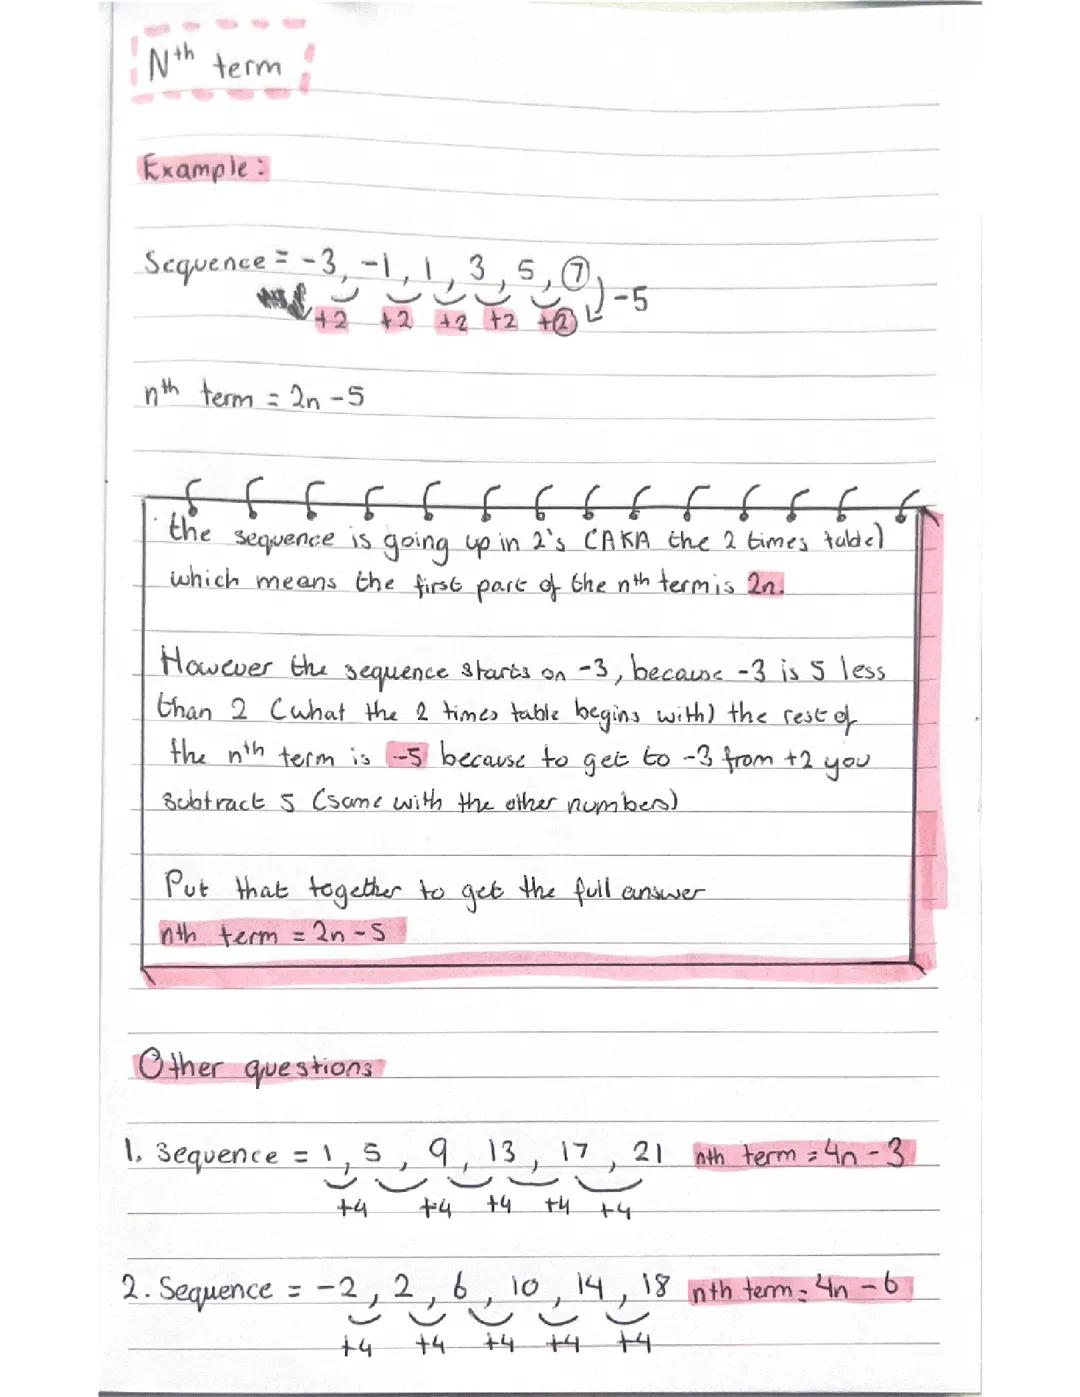 Nth term
Example:
Sequence = -3, -1, 1, 3, 5, 7
-5
+2 +2 +2 +2 +2
nth term = 2n -5
the sequence is going up in 2's (AKA the 2 times table)
which means the first part of the nth term is 2n.
However the sequence starts on -3, because -3 is 5 less
than 2 (what the 2 times table begins with) the rest of
the nth term is -5 because to get to -3 from +2 you
subtract 5 (same with the other numbers)
Put that together to get the full answer
nth term = 2n - 5
Other questions
1. Sequence = 1, 5, 9, 13, 17, 21 nth term = 4n - 3
+4 +4 +4 +4 +4
2. Sequence = -2, 2, 6, 10, 14, 18 nth term = 4n - 6
+4 +4 +4 +4 +4